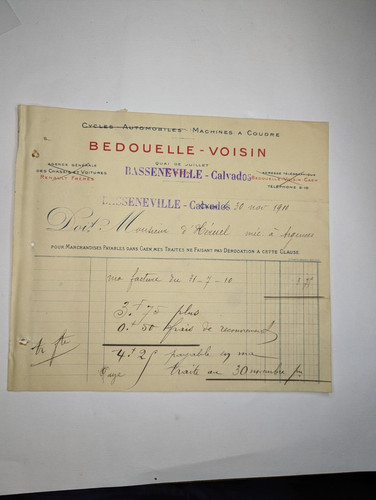 CYCLES - AUTOMOBILES - MACHINES A COUDRE
BEDOUELLE - VOISIN
QUAI DE JUILLET
AGENCE GÉNÉRALE
DES CHASSIS ET VOITURES
RENAULT FRÈRES
BASSENEVILLE - Calvados
ADRESSE TÉLÉGRAPHIQUE
BEDOUELLE-VOISIN-CAEN
TÉLÉPHONE
BASSENEVILLE - Calvados
CAEN, le 30 1910
Doit Monsieur à
POUR MARCHANDISES PAYABLES DANS CAEN, MES TRAITES NE FAISANT PAS DÉROGATION A CETTE CLAUSE
ma facture du 31-7-10 3.75
3.f 75 plus
0.f 50 frais de
4.f 25 payable
traite au 30 novembre